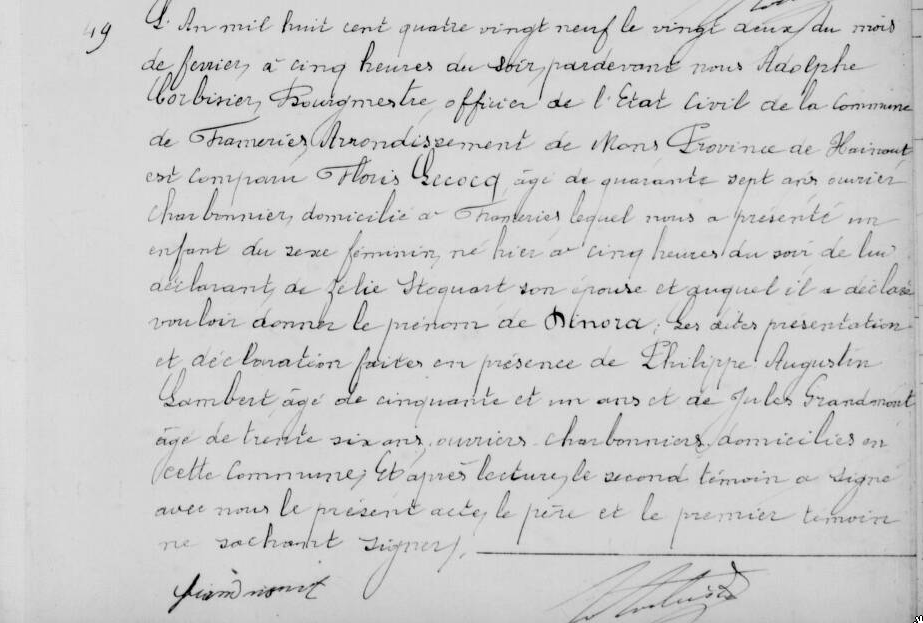 49 L'An mil huit cent quatre vingt neuf le vingt deux du mois
de fevrier, à cinq heures du soir, pardevant nous Adolphe
Corbisier, Bourgmestre, officier de l'Etat Civil de la Commune
de Frameries, Arrondissement de Mons Province de Hainaut,
est comparu Floris Lecocq, âgé de quarante sept ans, ouvrier
charbonnier, domicilié à Frameries lequel nous a présenté un
enfant du sexe féminin, né hier à cinq heures du soir de lui
déclarant, de Zélie Stoquart son épouse et auquel il a déclaré
vouloir donner le prénom de Dinora; Les dites présentation
et déclaration faites en présence de Philippe Augustin
Lambert âgé de cinquante et un ans et de Jules Grandmont
âgé de trente six ans, ouvriers charbonniers, domiciliés en
cette Commune, Et après lecture, le second témoin a signé
avec nous le présent acte, le père et le premier témoin
ne sachant signer.